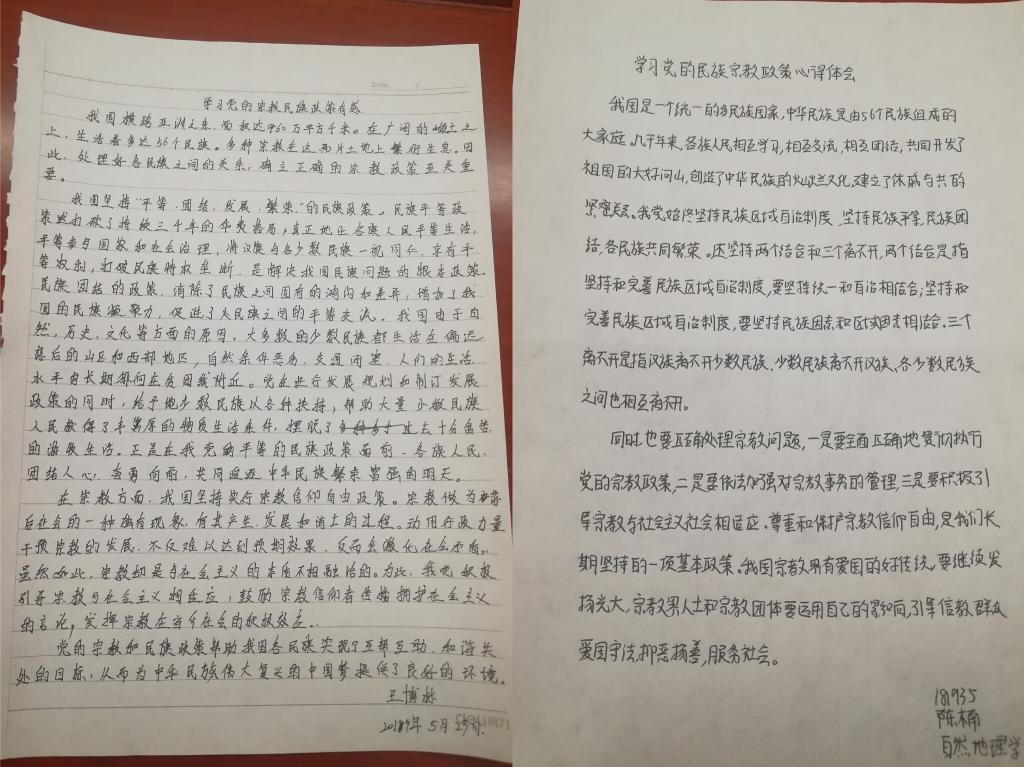 Date
学习党的宗教民族政策有感
我国横跨亚洲之东,面积达960万平方千米。在广阔的疆土之
上,生活着多达56个民族。多种宗教在这两片土地上繁衍生息。因
此,处理好各民族之间的关系,确立正确的宗教政策至关重
要。
我国坚持“平等、团结、发展、繁荣”的民族政策。民族平等政
策打破了持续三千年的华夷格局,真正地让各族人民平等生活,
平等参与国家和社会治理,将汉族与各少数民族一视同仁,享有平
等权利,打破民族特权垄断,是解决我国民族问题的根本政策。
民族团结的政策,消除了民族之间固有的鸿沟和差异,增加了我
国的民族凝聚力,促进了人民族之间的平等交流。我国由于自
然,历史,文化等方面的原因,大多数的少数民族都生活在偏远
落后的山区和西部地区,自然条件恶劣,交通闭塞,人们的生活
水平由长期徘徊在贫困线附近。党在进行发展规划和制订发展
政策的同时,给予地少数民族以各种扶持,帮助大量少数民族
人民获得了丰厚的物质生活条件,摆脱了过去十分贫苦
的生活。正是在我党的平等的民族政策面前,各族人民,
团结人心,奋勇向前,共同迎返中华民族繁荣富强的明天。
在宗教方面,我国坚持实行宗教信仰自由政策。宗教做为
后社会的一种独有现象,有其产生、发展和消亡的过程。动用行政力量
干预宗教的发展,不仅难以达到预期效果,反而会激化社会矛盾。
虽然如此,宗教却是与社会主义的本质不相融洽的。为此,我党积极
引导宗教与社会主义相适应,鼓励宗教信仰者传播拥护社会主义
的言论,发挥宗教在当今社会的积极效应。
党的宗教和民族政策帮助我国各民族实现了互帮互助,和谐共
处的目标,从而为中华民族伟大复兴的中国梦提供了良好的环境。
王博
5月29日.
学习党的民族宗教政策心得体会
我国是一个统一的多民族国家,中华民族是由56个民族组成的
大家庭。几千年来,各族人民相互学习,相互交流,相互团结,共同开发了
祖国的大好河山,创造了中华民族的灿烂文化,建立了休戚与共的
紧密关系。我党始终坚持民族区域自治制度,坚持民族平等,民族团
结,各民族共同繁荣。还坚持两个结合和三个离不开,两个结合是指
坚持和完善民族区域自治制度,要坚持统一和自治相结合;坚持和
完善民族区域自治制度,要坚持民族因素和区域因素相结合。三个
离不开是指汉族离不开少数民族,少数民族离不开汉族,各少数民族
之间也相互离不开。
同时也要正确处理宗教问题,一是要全面正确地贯彻执行
党的宗教政策,二是要依法加强对宗教事务的管理,三是要积极引
导宗教与社会主义社会相适应。尊重和保护宗教信仰自由,是我们长
期坚持的一项基本政策。我国宗教界有爱国的好传统,要继续发
扬光大,宗教界人士和宗教团体要运用自己的影响,引导信教群众
爱国守法,抑恶扬善,服务社会。
181935
陈楠
自然地理学